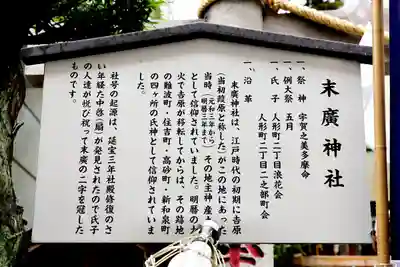 末廣神社
一、祭神 宇賀之美多摩命
一、例大祭 五月
一、氏子 人形町二丁目浪花会
人形町二丁目二之部町会
一、沿革
末廣神社は、江戸時代の初期に吉原
（当初葭原と称した）がこの地にあった
当時（元和三年から明暦三年まで）その地主神産土神
として信仰されていました。明暦の大
火で吉原が移転してからは、その跡地
の難波町・住吉町・高砂町・新和泉町
の四ヶ所の氏神として信仰されていま
した。
社号の起源は、延宝三年社殿修復のさ
い年経た中啓（扇）が発見されたので氏子
の人達が悦び祝って末廣の二字を冠した
ものです。